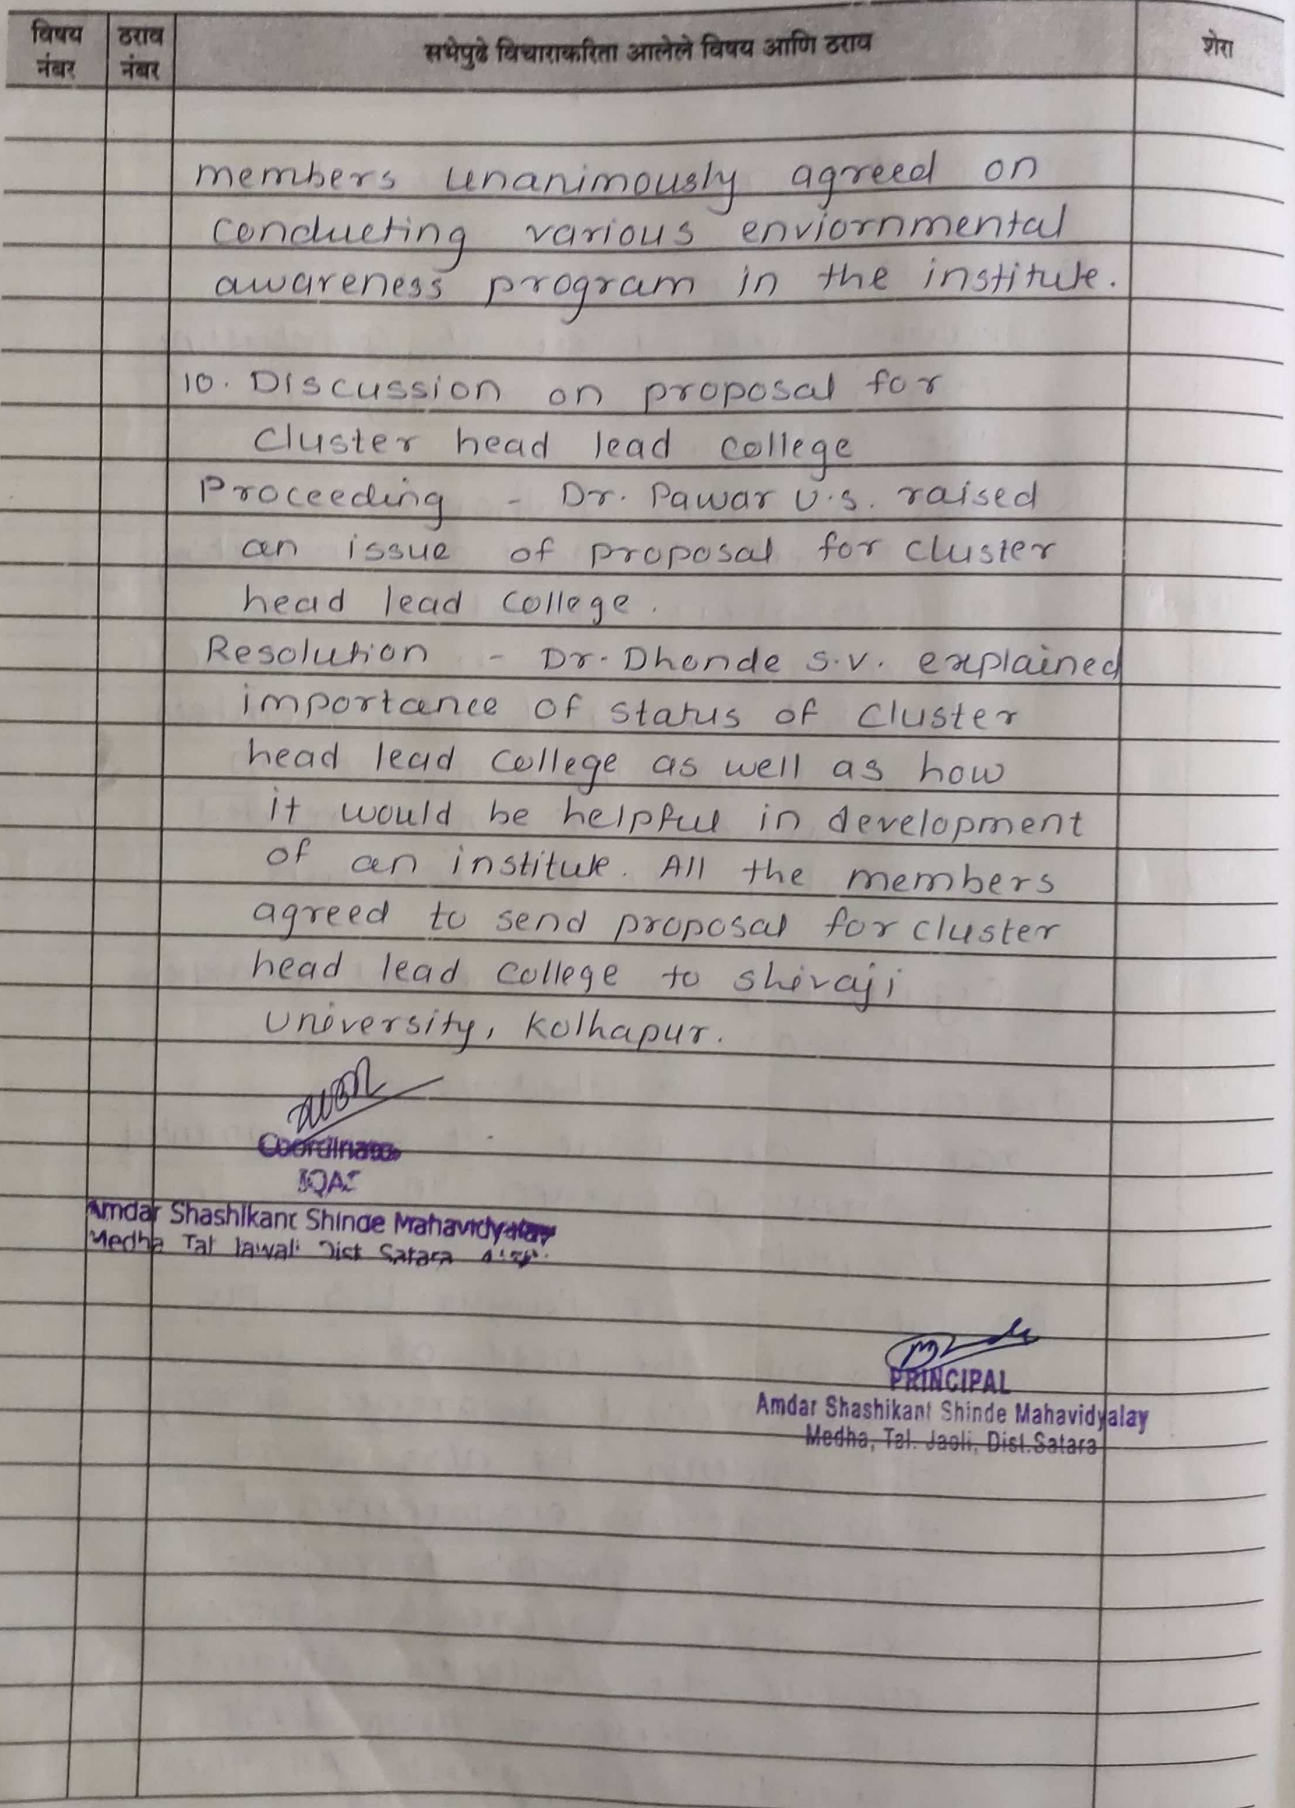 विषय नंबर ठराव नंबर सभेपुढे विचाराकरिता आलेले विषय आणि ठराव शेरा
members unanimously agreed on
conducting various enviornmental
awareness program in the institute.
10. Discussion on proposal for
cluster head lead college
Proceeding - Dr. Pawar U.S. raised
an issue of proposal for cluster
head lead college.
Resolution - Dr. Dhonde S.V. explained
importance of status of cluster
head lead college as well as how
it would be helpful in development
of an institute. All the members
agreed to send proposal for cluster
head lead college to shivaji
University, Kolhapur.
Coordinator
IQAC
Amdar Shashikant Shinde Mahavidyalay
Medha Tal Jawali Dist Satara
PRINCIPAL
Amdar Shashikant Shinde Mahavidyalay
Medha, Tal. Jaoli, Dist.Satara